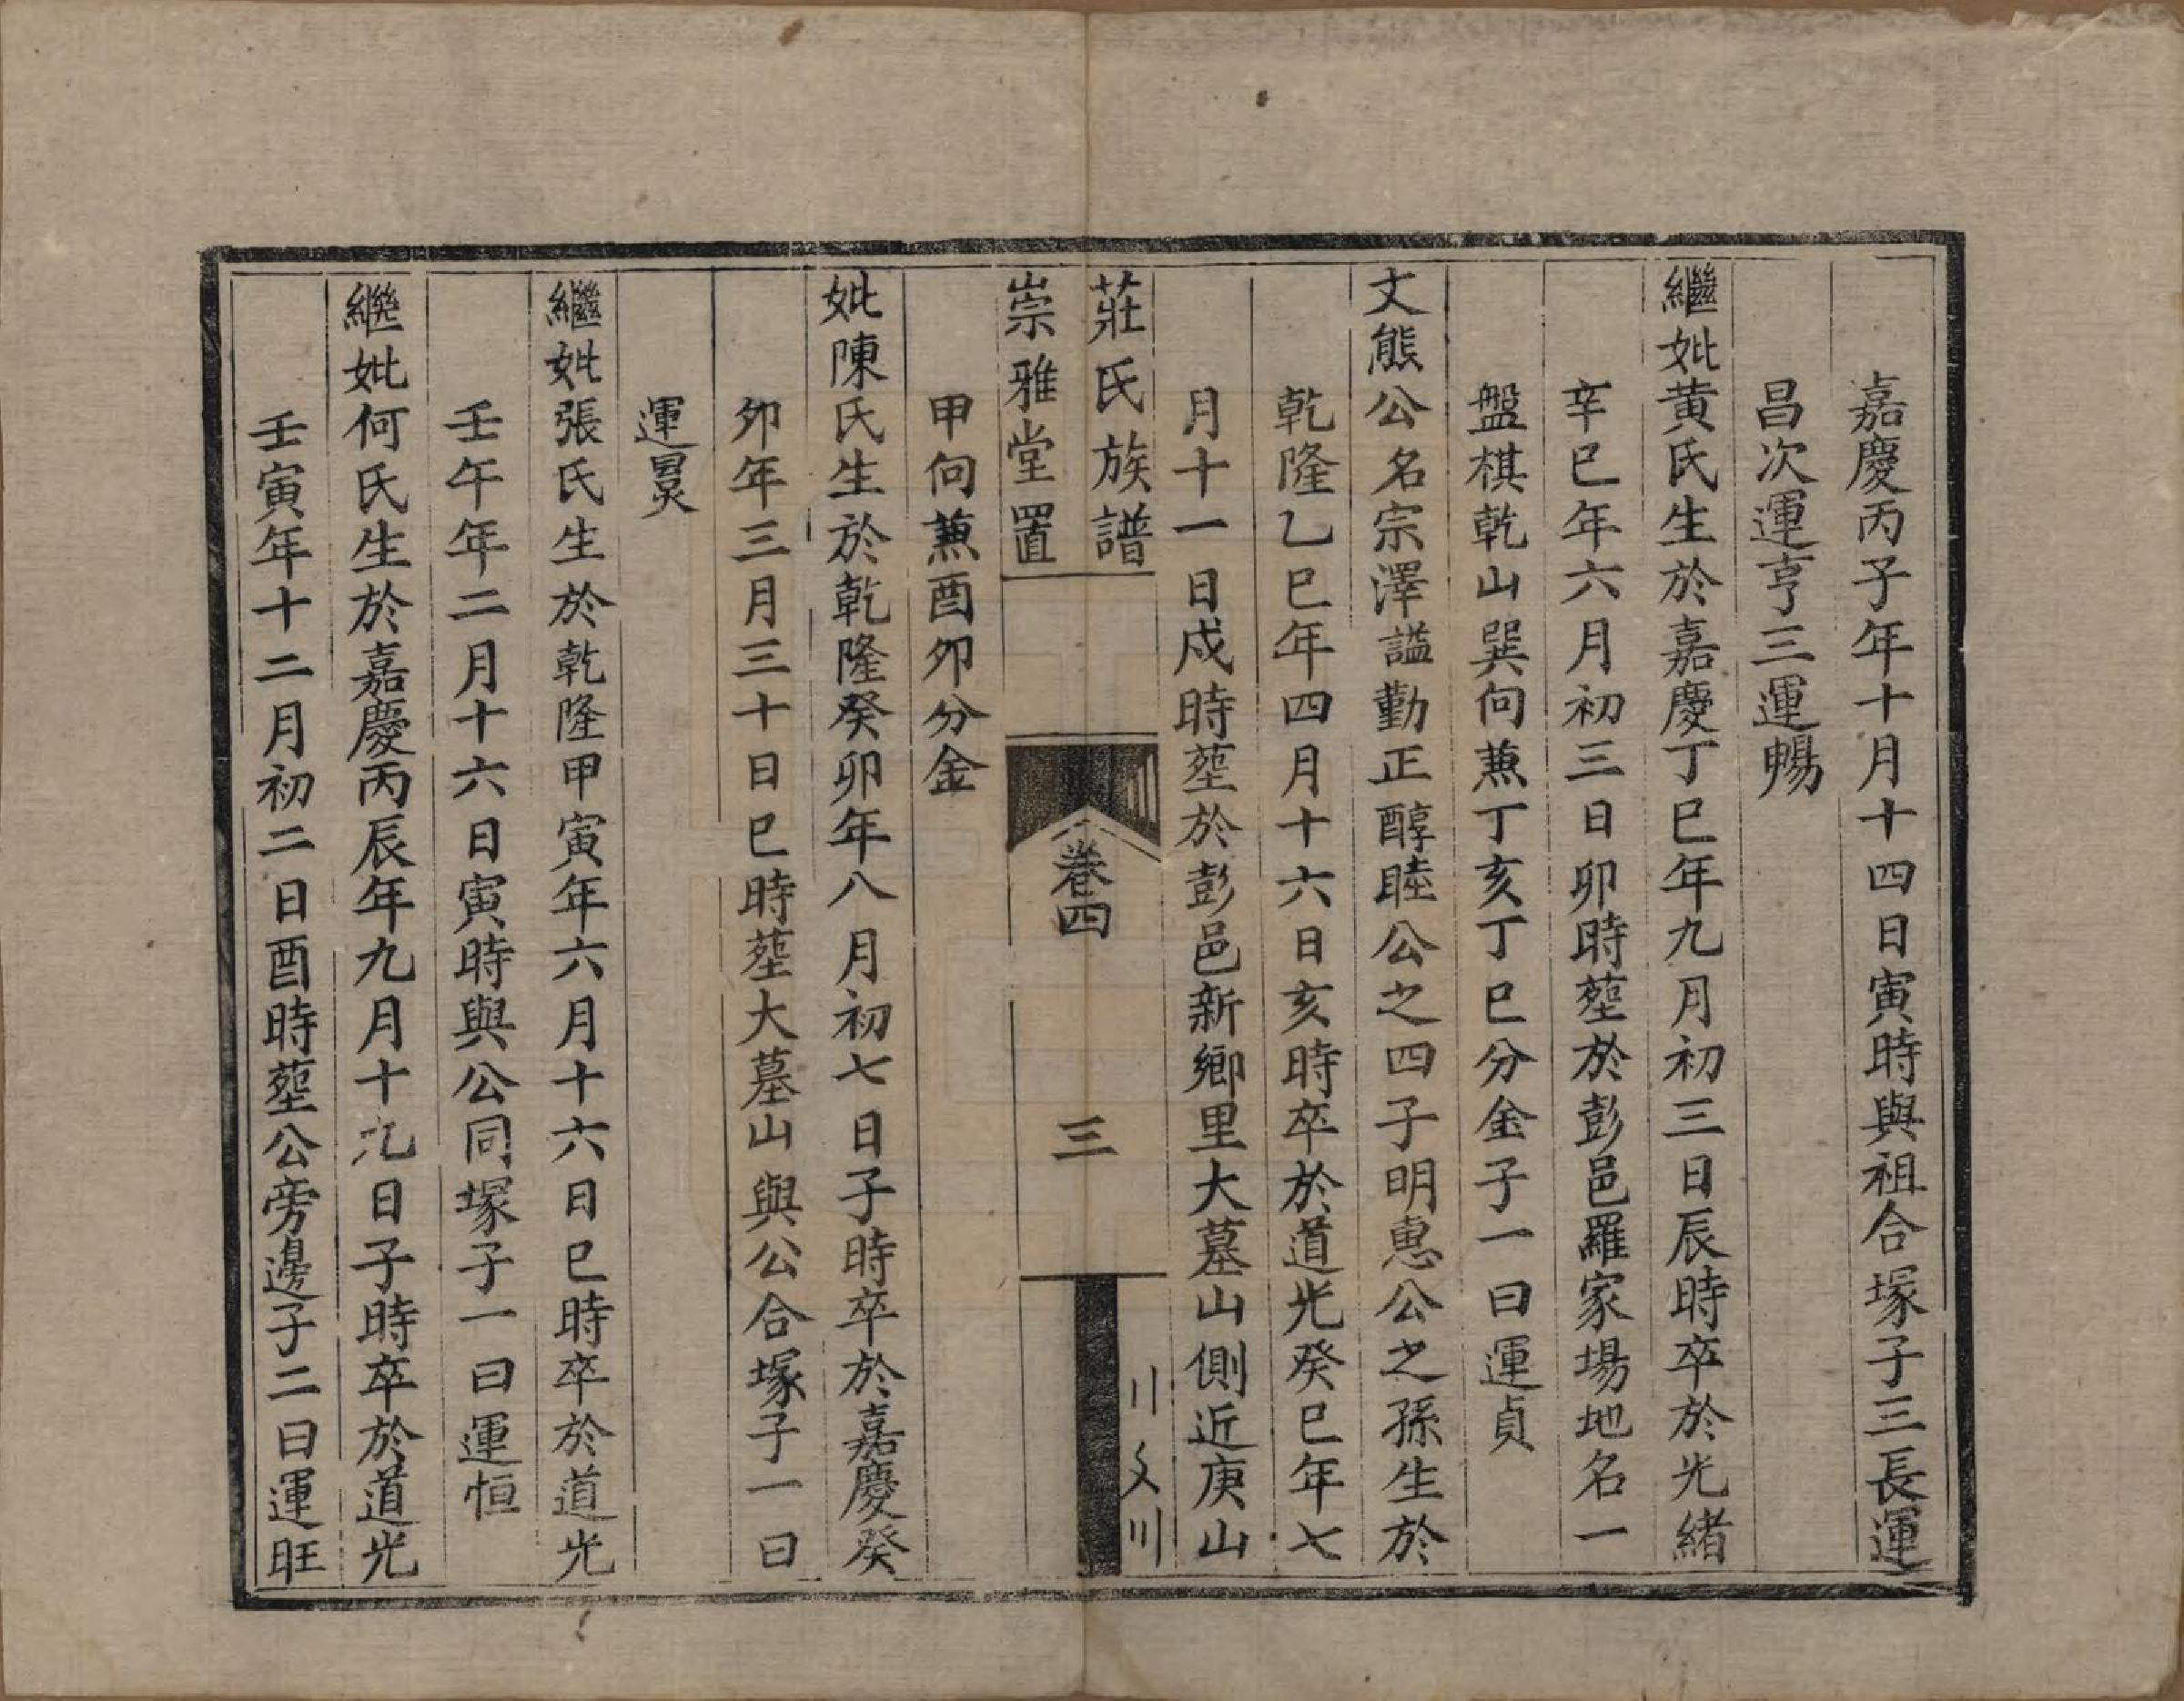 嘉慶丙子年十月十四日寅時與祖合塚子三長運
昌次運亨三運暢
繼妣黄氏生於嘉慶丁巳年九月初三日辰時卒於光緒
辛巳年六月初三日卯時塟於彭邑羅家場地名一
盤棋乾山巽向兼丁亥丁巳分金子一曰運貞
文熊公名宗澤謚勤正醇睦公之四子明惠公之孫生於
乾隆乙巳年四月十六日亥時卒於道光癸巳年七
月十一日戍時塟於彭邑新鄉里大墓山側近庚山
莊氏族譜
崇雅堂置
卷四
三
甲向兼酉卯分金
妣陳氏生於乾隆癸卯年八月初七日子時卒於嘉慶癸
卯年三月三十日巳時塟大墓山與公合塚子一曰
運炅
繼妣張氏生於乾隆甲寅年六月十六日巳時卒於道光
壬午年二月十六日寅時與公同塚子一曰運恒
繼妣何氏生於嘉慶丙辰年九月十九日子時卒於道光
壬寅年十二月初二日酉時塟公旁邊子二曰運旺